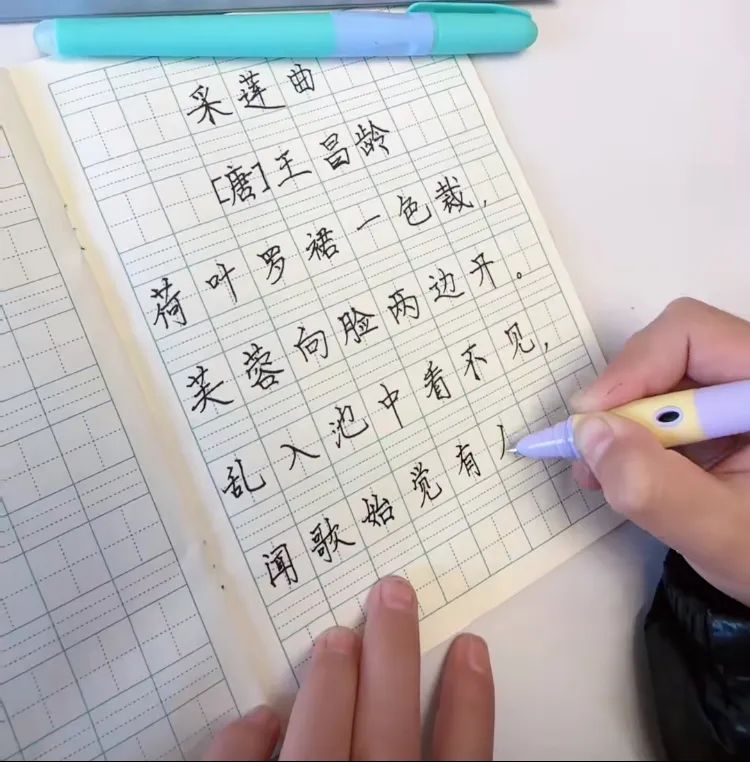 采莲曲
[唐]王昌龄
荷叶罗裙一色裁,
芙蓉向脸两边开。
乱入池中看不见,
闻歌始觉有